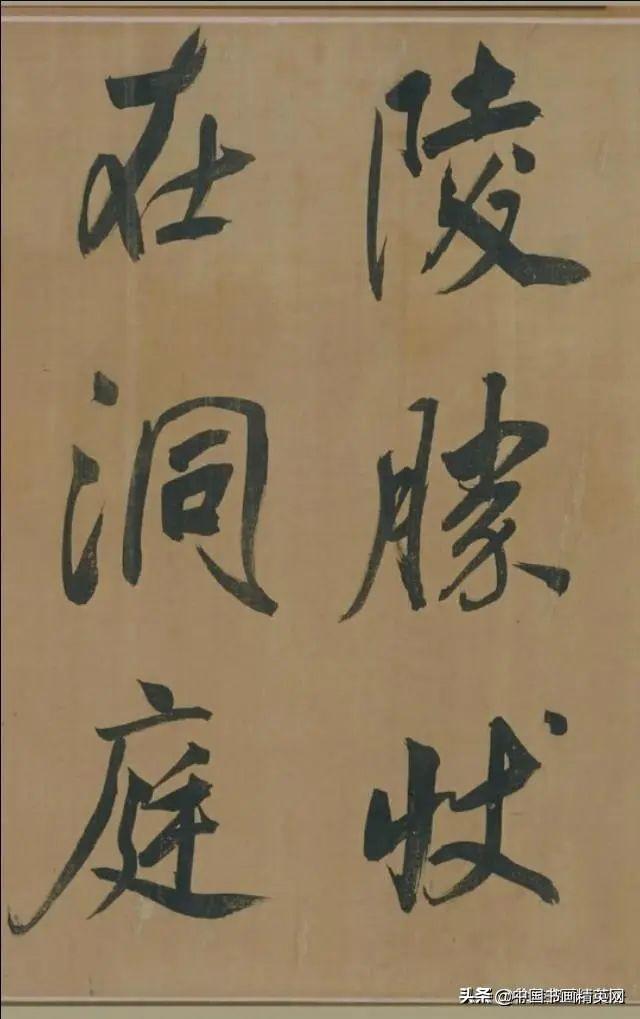 陵勝狀
在洞庭
头条 @中国书画精英网